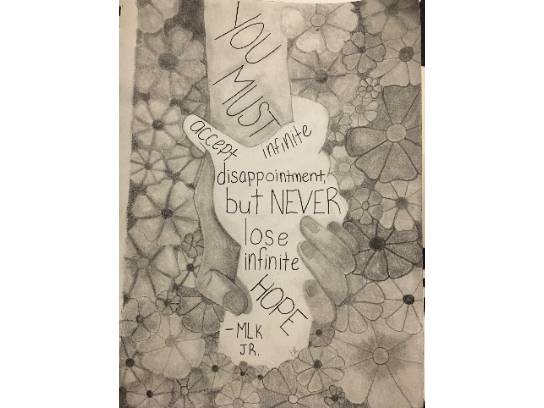 YOU
MUST
accept infinite
disappointment,
but NEVER
lose
infinite
HOPE
-MLK
JR.